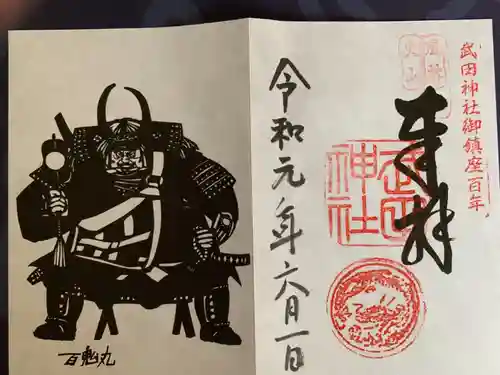 武田神社御鎮座百年。
奉拝
武田
神社
令和元年六月一日
百鬼丸